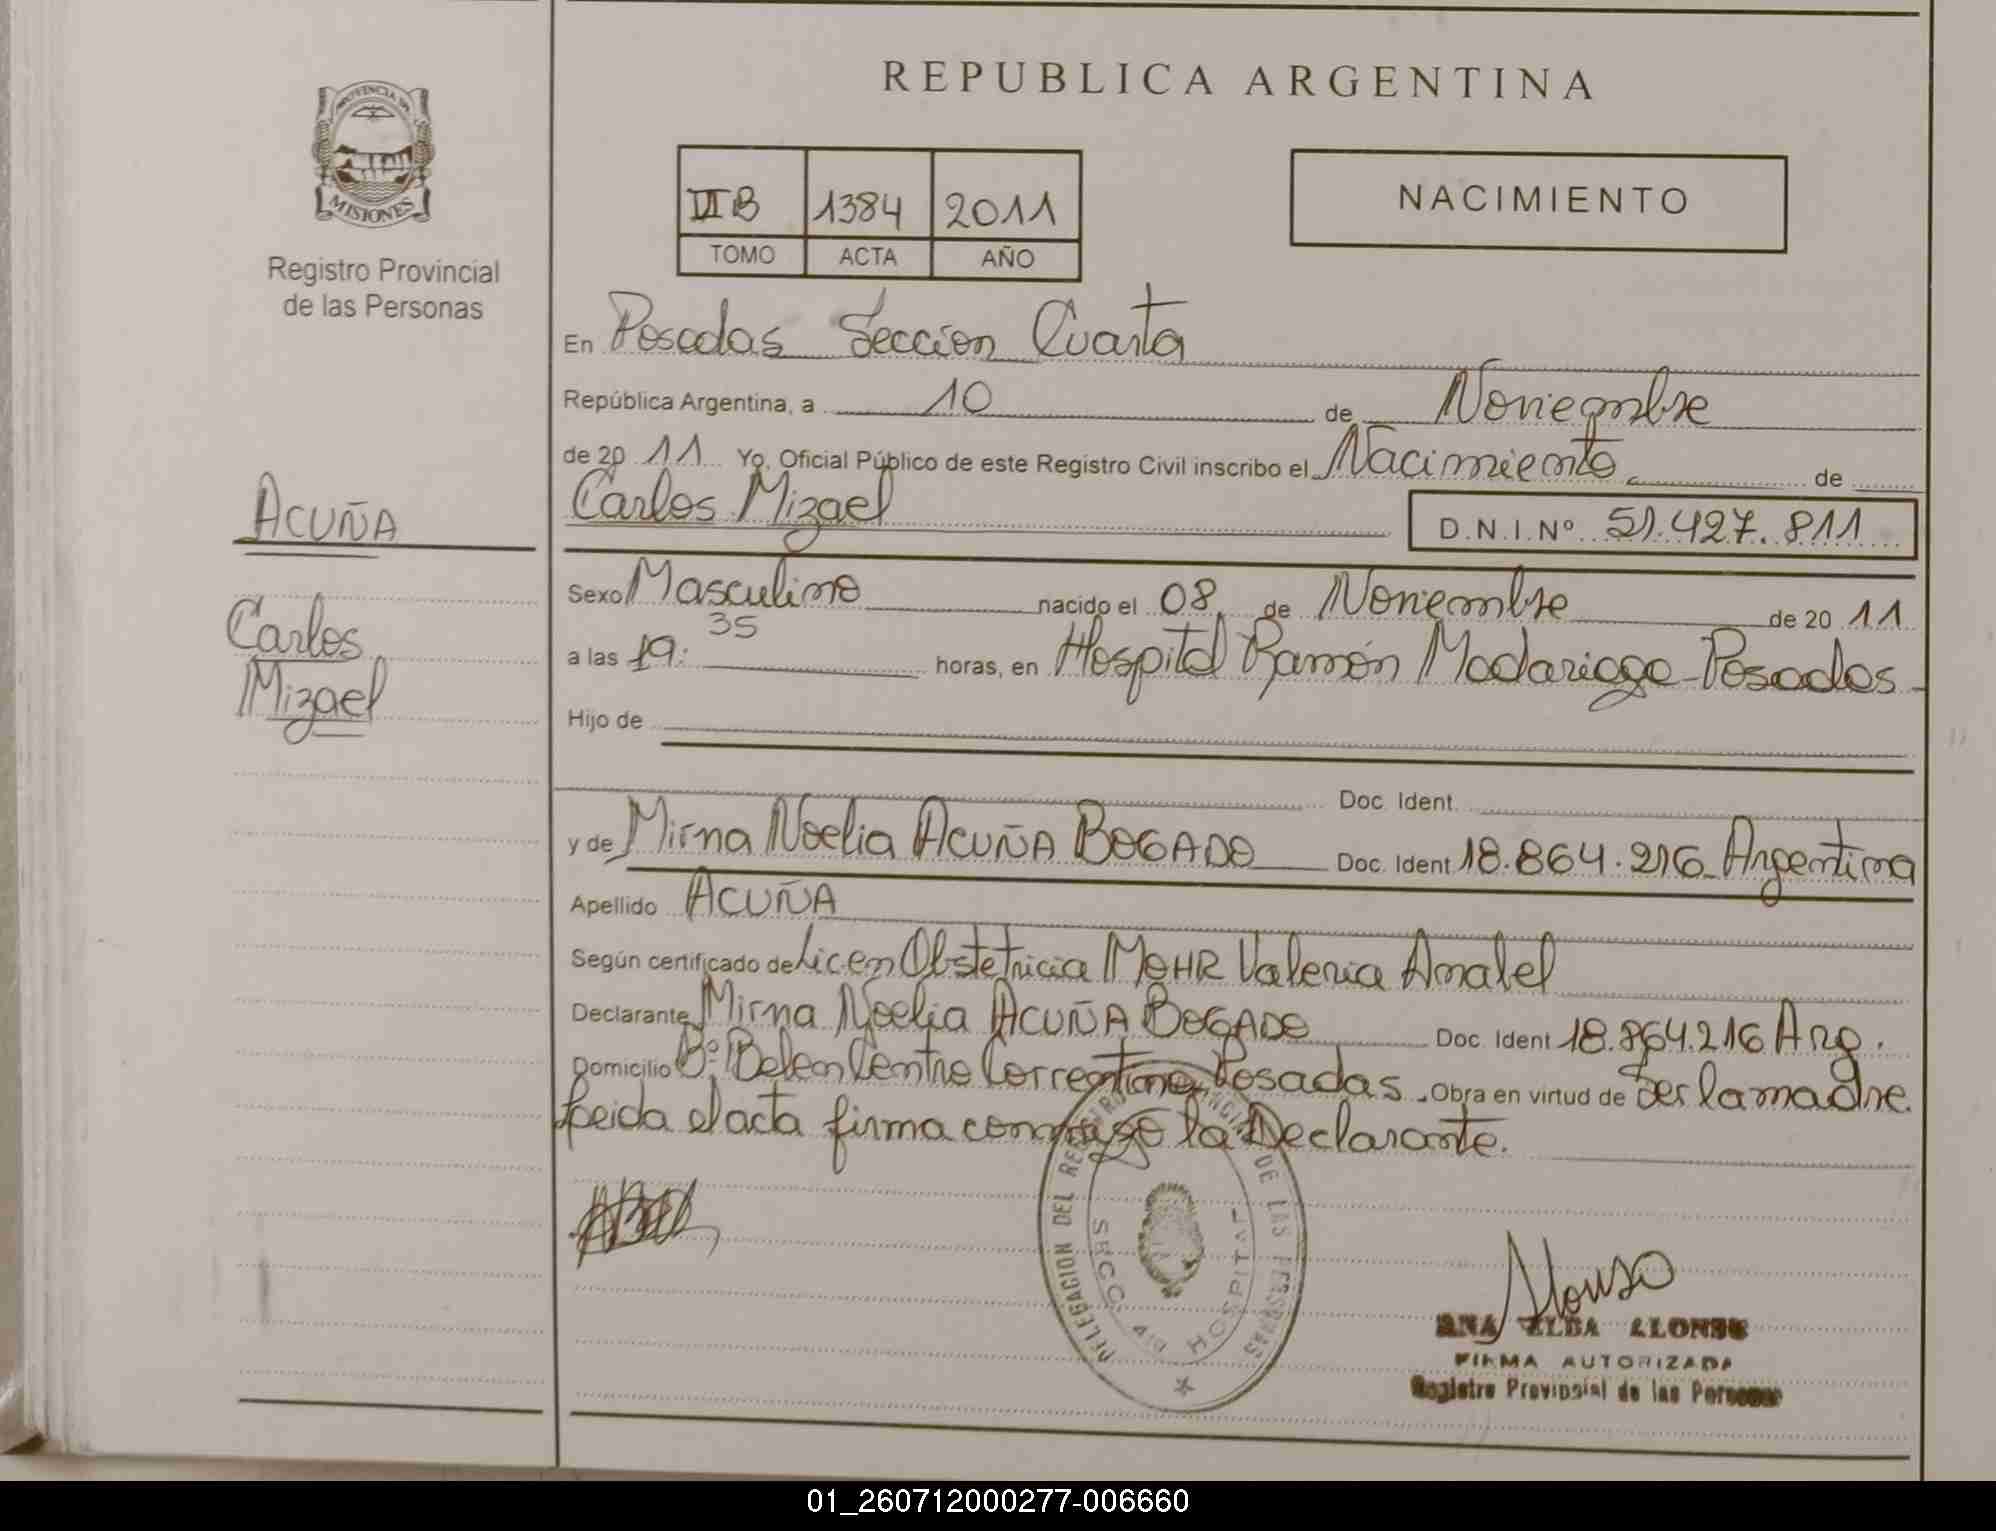 REPUBLICA ARGENTINA
PROVINCIA DE
MISIONES
Registro Provincial
de las Personas
VI B 1384 2011
TOMO ACTA AÑO
NACIMIENTO
En Posadas Seccion Cuarta
República Argentina, a 10 de Noviembre
de 2011 Yo, Oficial Público de este Registro Civil inscribo el Nacimiento de
Carlos Mizael
D.N.I. Nº 51.427.811
ACUÑA
Carlos
Mizael
Sexo Masculino nacido el 08 de Noviembre de 2011
a las 19:35 horas, en Hospital Ramón Madariaga - Posadas -
Hijo de
Doc. Ident.
y de Mirna Noelia ACUÑA BOGADO Doc. Ident 18.864.216 Argentina
Apellido ACUÑA
Según certificado de Licen Obstetricia MOHR Valeria Anabel
Declarante Mirna Noelia ACUÑA BOGADO Doc. Ident 18.864.216 Arg.
Domicilio Bº Belen Centro Correntino Posadas. Obra en virtud de Ser la madre.
Leida el acta firma conmigo la Declarante.
DELEGACION DEL REGISTRO PROVINCIAL DE LAS PERSONAS
SECC. 4ta HOSPITAL
Alonso
ANA ELBA ALONSO
FIRMA AUTORIZADA
Registro Provincial de las Personas
01_260712000277-006660